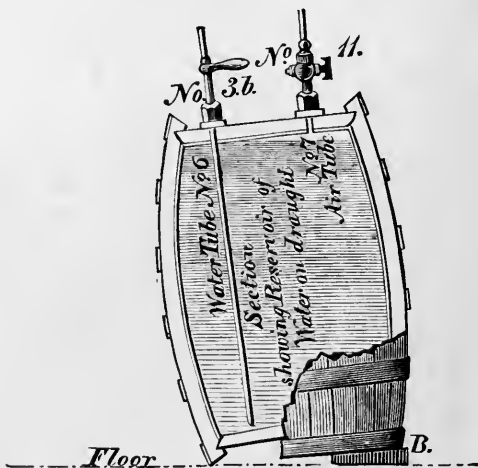 No. 3.b.
No 11.
Water Tube No 6
Section
showing Reservoir of
Water on draught
No 7
Air Tube
B.
Floor